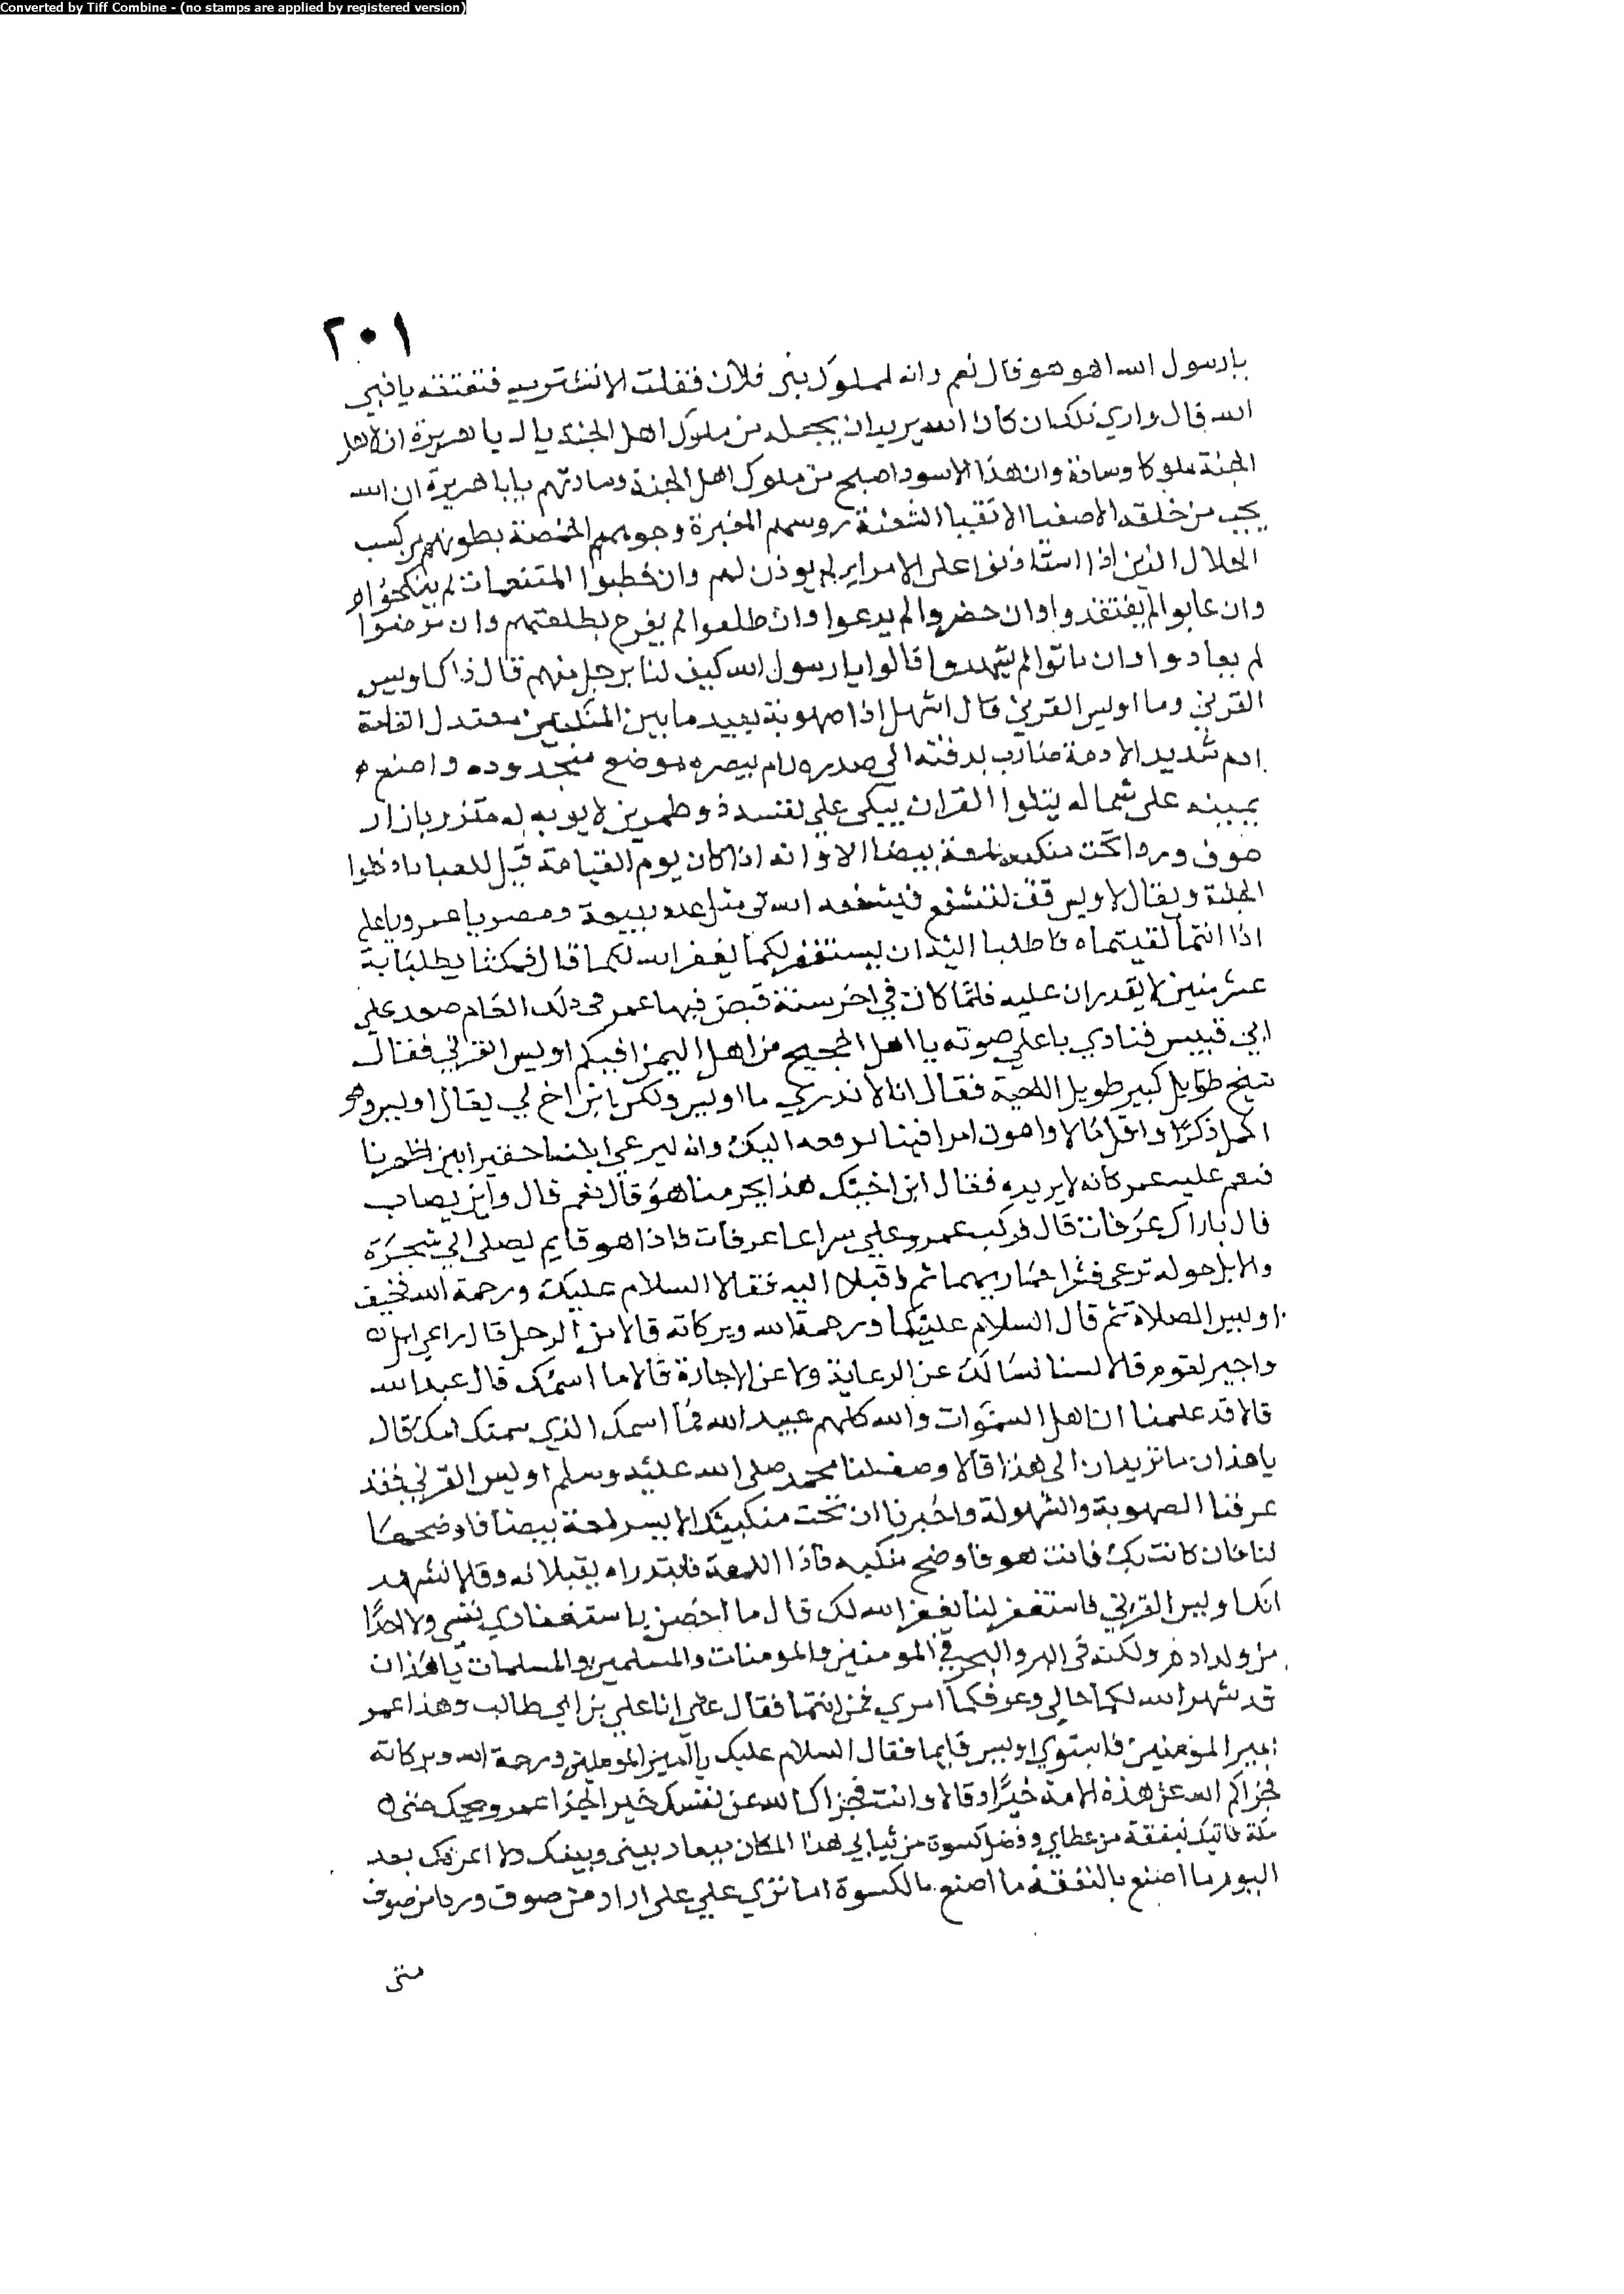 Converted by Tiff Combine - (no stamps are applied by registered version)
٢٠١
يارسول الله اهو هو قال نعم وانه لمملوك بني فلان فقلت الا تشتريه فتعتقه يا نبي
الله قال واري ذلك ان كان الله يريد ان يجعله من ملوك اهل الجنة يا اباهريرة ان لاهل
الجنة ملوكا وسادة وان هذا الاسود اصبح من ملوك اهل الجنة وسادتهم يابا هريرة ان الله
يحب من خلقه الاصفيا الاتقيا الشعثة روسهم المغبرة وجوههم الخمصة بطونهم من كسب
الحلال الذين اذا استاذنوا على الامرا لم يوذن لهم وان خطبوا المتنعمات لم ينكحوا
وان غابوا لم يفتقدوا وان حضروا لم يدعوا وان طلعوا لم يفرح بطلعتهم وان مرضوا
لم يعادوا وان ماتوا لم يشهدوا قالوا يارسول الله كيف لنا برجل منهم قال ذاك اويس
القرني وما اويس القرني قال اشهل اذا صهوبة بعيد ما بين المنكبين معتدل القامة
ادم شديد الادمة ضارب بدقنه الي صدره رام ببصره موضع سجوده واضع
يمينه على شماله يتلوا القران يبكى علي نفسه ذو طمرين لا يوبه له متزر بازار
صوف وردا تحت منكبه لمعة بيضا الا وانه اذا كان يوم القيامة قيل للعباد ادخلوا
الجنة ويقال لاويس قف لتشفع فيشفعه الله في مثل عدد ربيعة ومضر يا عمر ويا علي
اذا انتما لقيتماه فاطلبا اليه ان يستغفر لكما يغفر الله لكما قال فمكثا يطلبانه
عشر سنين لا يقدران عليه فلما كان في اخر سنة قبض فيها عمر في ذلك العام صعد علي
ابي قبيس فنادي باعلي صوته يا اهل الحجيج من اهل اليمن افيكم اويس القرني فقال
شيخ طويل كبير طويل اللحية فقال انا لا ندري ما اويس ولكن ابن اخ لي يقال اويس وهو
اخمل ذكرا واقل مالا واهون امرا من ان نرفعه اليك وانه ليرعي ابلنا حقير بين اظهرنا
فعمي عليه عمر كانه لا يريده فقال ابن اخيك هذا بحرمنا هو قال نعم قال واين يصاب
قال باراك عرفات قال فركب عمر وعلي سراعا عرفات فاذا هو قايم يصلي الي شجرة
والابل حوله ترعى فشدا حماريهما ثم اقبلا اليه فقالا السلام عليك ورحمة الله فخفف
اويس الصلاة ثم قال السلام عليكما ورحمة الله وبركاته قالا من الرجل قال راعي ابل
واجير لقوم قالا لسنا نسالك عن الرعاية ولا عن الاجارة قالا ما اسمك قال عبد الله
قالا قد علمنا ان اهل السموات والله كلهم عبيد الله فما اسمك الذي سمتك امك قال
يا هذان ما تريدان الي هذا قالا وصف لنا محمد صلي الله عليه وسلم اويس القرني فقد
عرفنا الصهوبة والشهولة واخبرنا ان تحت منكبك الايسر لمعة بيضا فاوضحها
لنا فان كانت بك فانت هو فاوضح منكبه فاذا اللمعة فابتدراه يقبلانه وقالا نشهد
انك اويس القرني فاستغفر لنا يغفر الله لك قال ما اخص باستغفاري نفسي ولا احدا
من ولد ادم ولكنه في البر والبحر في المومنين والمومنات والمسلمين والمسلمات يا هذان
قد شهر الله لكما حالي وعرفكما امري فمن انتما فقال علي انا علي بن ابي طالب وهذا عمر
امير المومنين فاستوي اويس قايما فقال السلام عليك يا امير المومنين ورحمة الله وبركاته
فجزاكم الله عن هذه الامة خيرا وقالا وانت فجزاك الله عن نفسك خير الجزا عمر
مكة فاتيك بنفقة من عطاي وفضل كسوة من ثيابي هذا المكان ميعاد بيني وبينك ولا اعرفك بعد
اليوم ما اصنع بالنفقة ما اصنع بالكسوة اما تري علي ازار من صوف وردا من صوف
متى